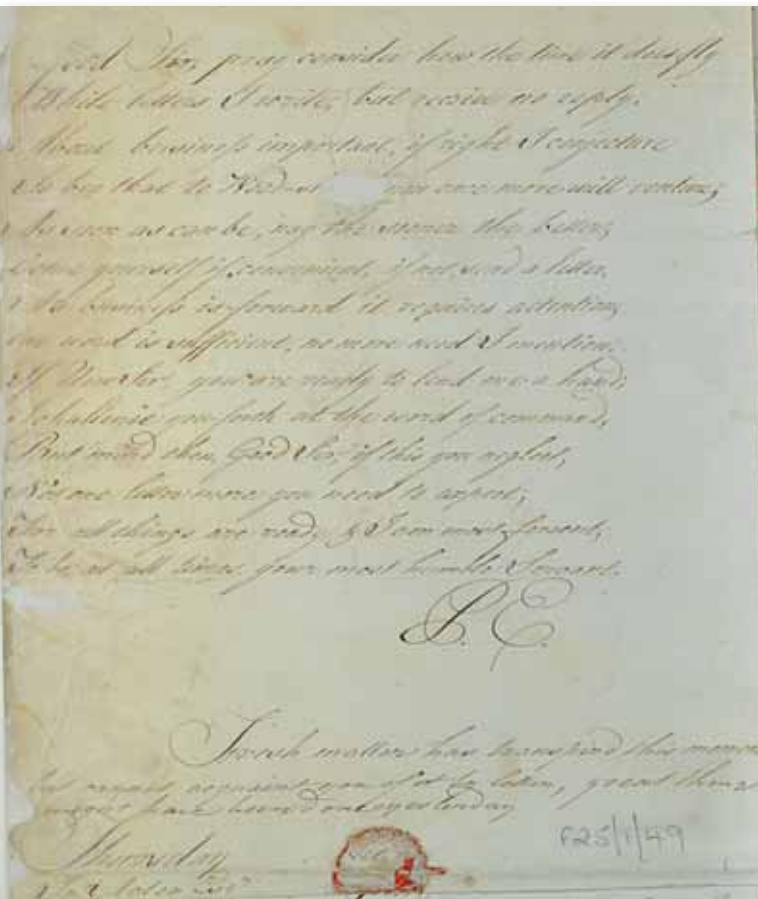 Good Sir, pray consider how the time it does fly
While letters I write, but receive no reply.
About business important, if right I conjecture
So beg that to once more will venture;
As soon as can be, nay the sooner the better,
Come yourself if convenient, if not, send a letter.
business is forward it requires attention,
one word is sufficient, no more need I mention.
If Sir, you are ready to lend me a hand;
you forth at the word of command.
But mind then, Good Sir, if this you neglect,
Not one letter more you need to expect;
For all things are ready & I am most fervent,
To be at all times your most humble Servant.
P. E.
Fresh matter has transpired this
acquaint you of it by letter, great
have been yesterday
Thursday
F25/1/49